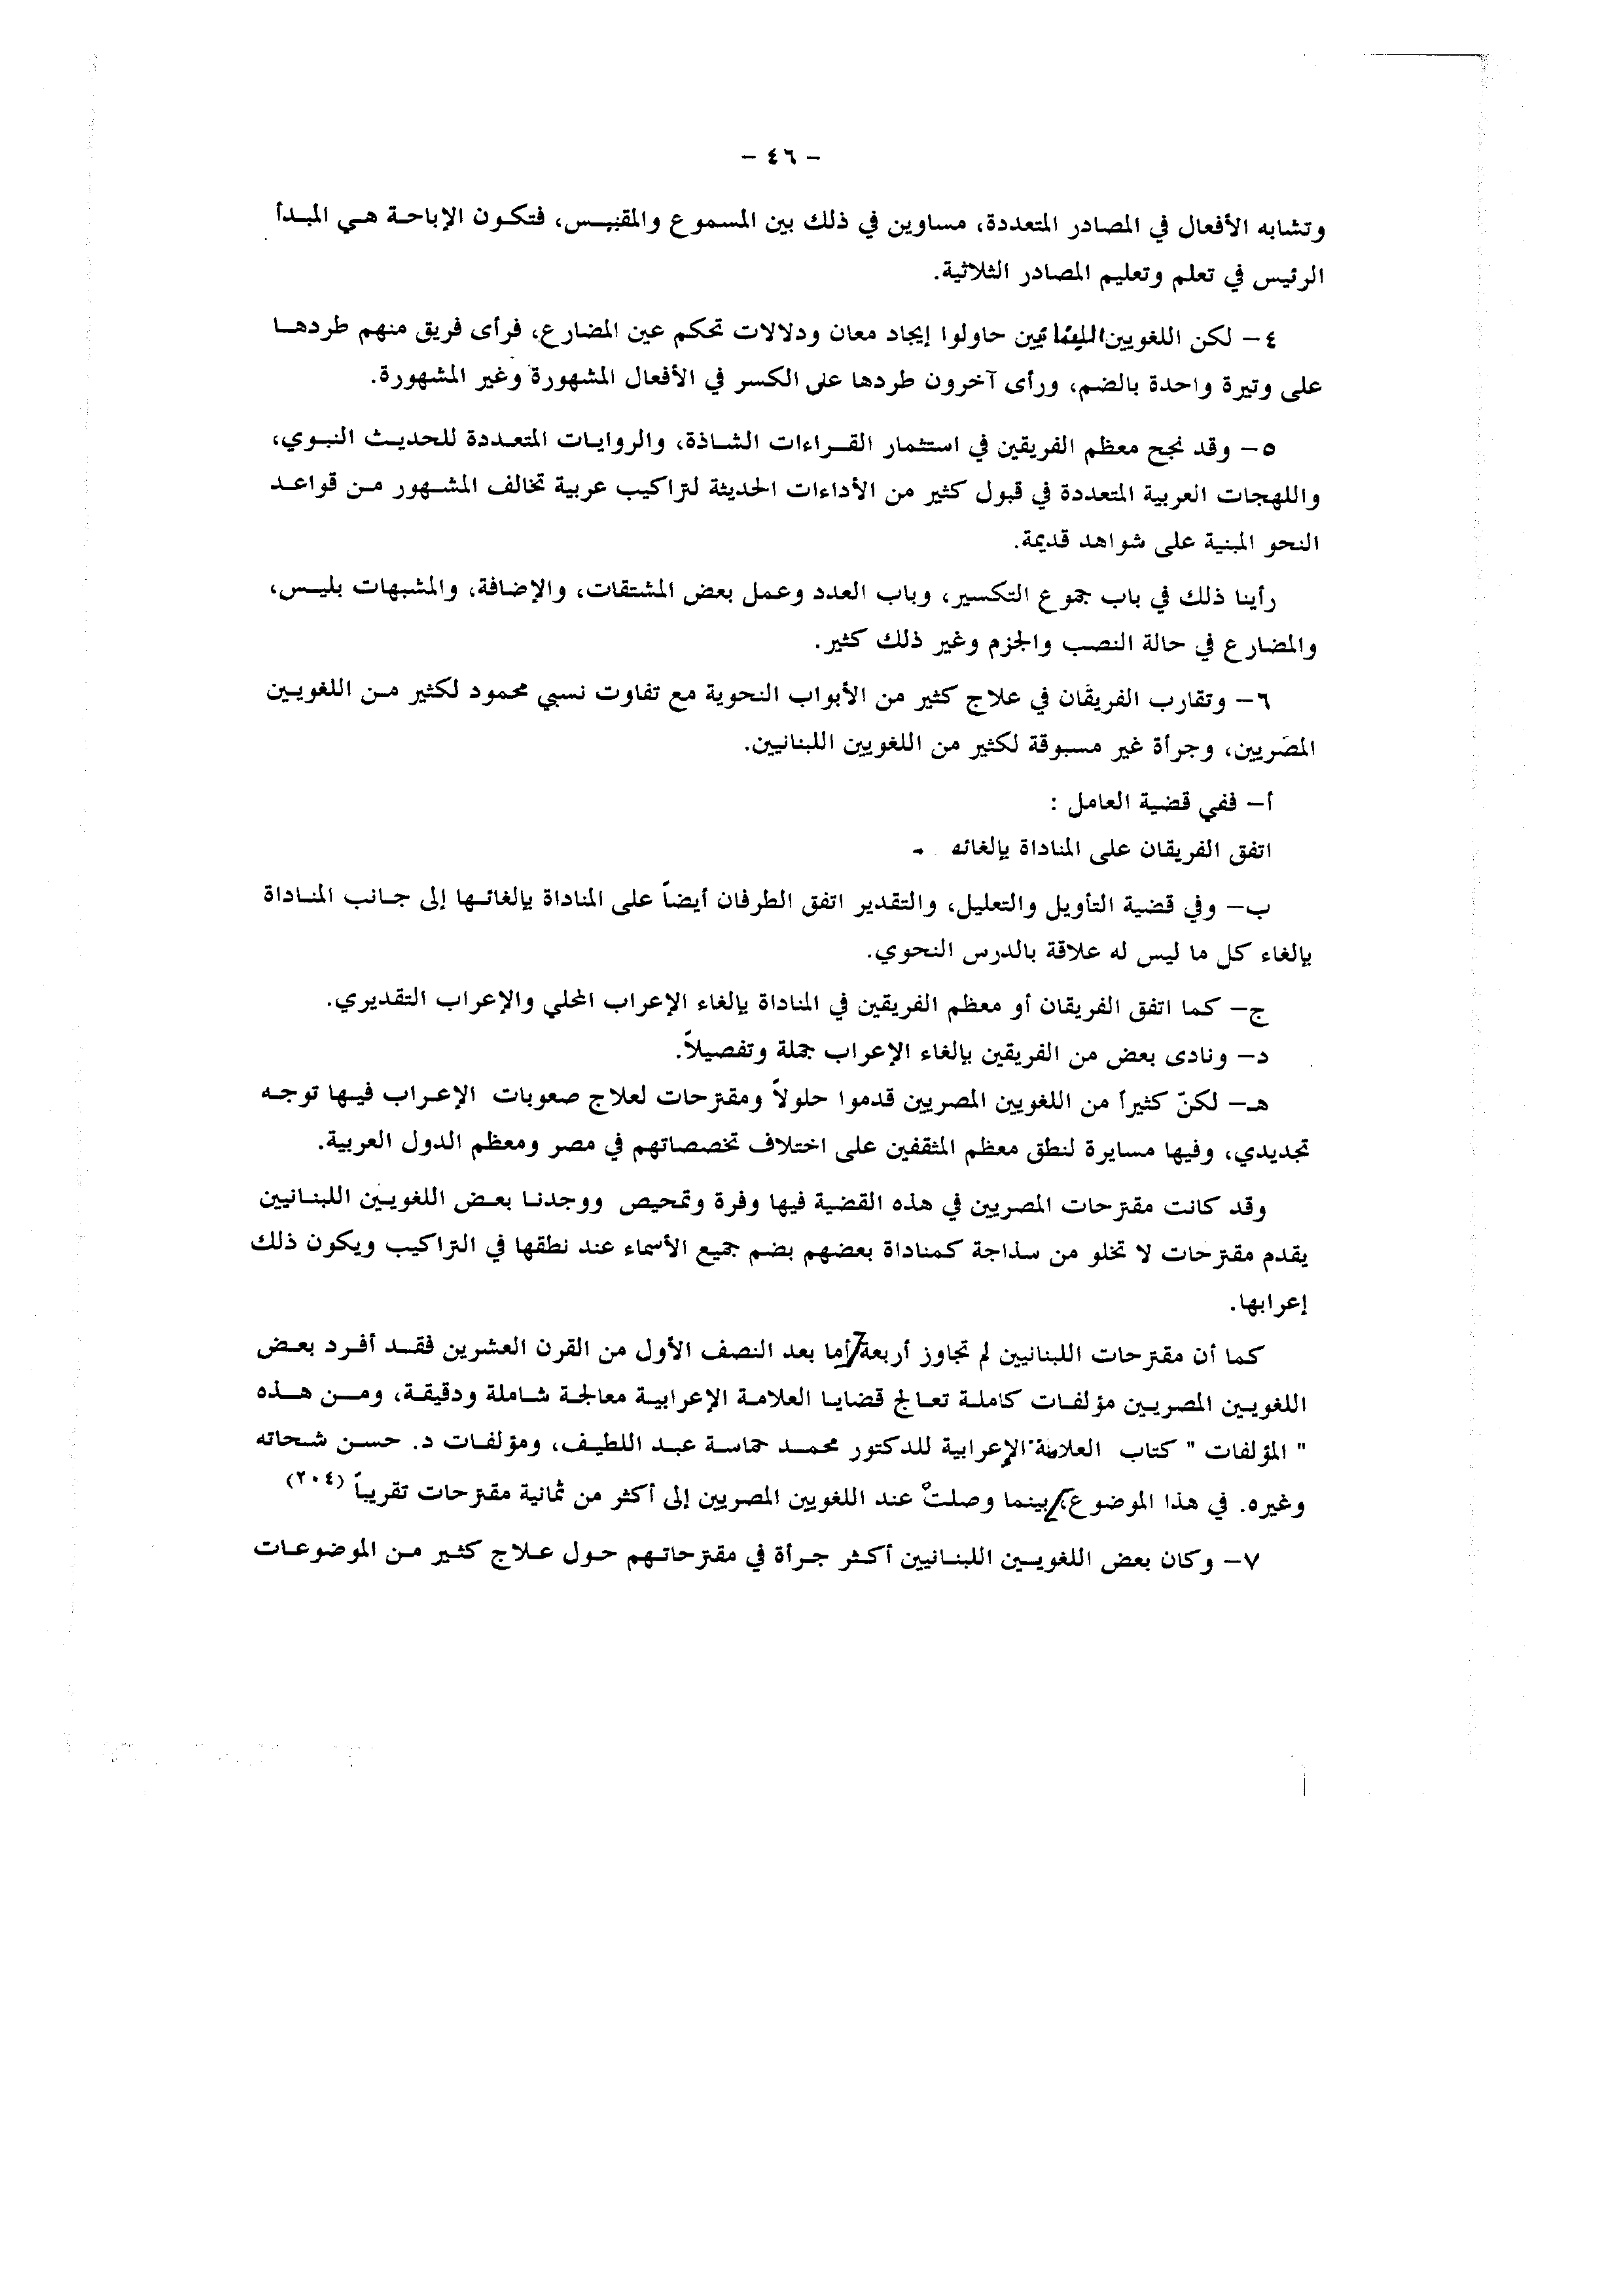 - ٤٦ -
وتشابه الأفعال في المصادر المتعددة، مساوين في ذلك بين المسموع والمقيس، فتكون الإباحة هي المبدأ
الرئيس في تعلم وتعليم المصادر الثلاثية.
٤- لكن اللغويين اللبنانيين حاولوا إيجاد معان ودلالات تحكم عين المضارع، فرأى فريق منهم طردها
على وتيرة واحدة بالضم، ورأى آخرون طردها على الكسر في الأفعال المشهورة وغير المشهورة.
٥- وقد نجح معظم الفريقين في استثمار القراءات الشاذة، والروايات المتعددة للحديث النبوي،
واللهجات العربية المتعددة في قبول كثير من الأداءات الحديثة لتراكيب عربية تخالف المشهور من قواعد
النحو المبنية على شواهد قديمة.
رأينا ذلك في باب جموع التكسير، وباب العدد وعمل بعض المشتقات، والإضافة، والمشبهات بليس،
والمضارع في حالة النصب والجزم وغير ذلك كثير.
٦- وتقارب الفريقان في علاج كثير من الأبواب النحوية مع تفاوت نسبي محمود لكثير من اللغويين
المصريين، وجرأة غير مسبوقة لكثير من اللغويين اللبنانيين.
أ- ففي قضية العامل :
اتفق الفريقان على المناداة بإلغائه
ب- وفي قضية التأويل والتعليل، والتقدير اتفق الطرفان أيضاً على المناداة بإلغائها إلى جانب المناداة
بإلغاء كل ما ليس له علاقة بالدرس النحوي.
ج- كما اتفق الفريقان أو معظم الفريقين في المناداة بإلغاء الإعراب المحلي والإعراب التقديري.
د- ونادى بعض من الفريقين بإلغاء الإعراب جملة وتفصيلاً.
هـ- لكنّ كثيراً من اللغويين المصريين قدموا حلولاً ومقترحات لعلاج صعوبات الإعراب فيها توجه
تجديدي، وفيها مسايرة لنطق معظم المثقفين على اختلاف تخصصاتهم في مصر ومعظم الدول العربية.
وقد كانت مقترحات المصريين في هذه القضية فيها وفرة وتمحيص ووجدنا بعض اللغويين اللبنانيين
يقدم مقترحات لا تخلو من سذاجة كمناداة بعضهم بضم جميع الأسماء عند نطقها في التراكيب ويكون ذلك
إعرابها.
كما أن مقترحات اللبنانيين لم تجاوز أربعة أما بعد النصف الأول من القرن العشرين فقد أفرد بعض
اللغويين المصريين مؤلفات كاملة تعالج قضايا العلامة الإعرابية معالجة شاملة ودقيقة، ومن هذه
" المؤلفات " كتاب العلامة الإعرابية للدكتور محمد حماسة عبد اللطيف، ومؤلفات د. حسن شحاته
وغيره. في هذا الموضوع بينما وصلتْ عند اللغويين المصريين إلى أكثر من ثمانية مقترحات تقريباً (٢٠٤)
٧- وكان بعض اللغويين اللبنانيين أكثر جرأة في مقترحاتهم حول علاج كثير من الموضوعات